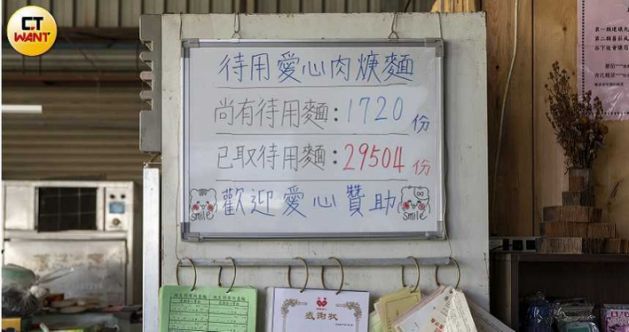 CT
WANT
待用愛心肉焿麵
尚有待用麵：1720份
已取待用麵：29504份
smile 歡迎愛心贊助 smile
感謝狀